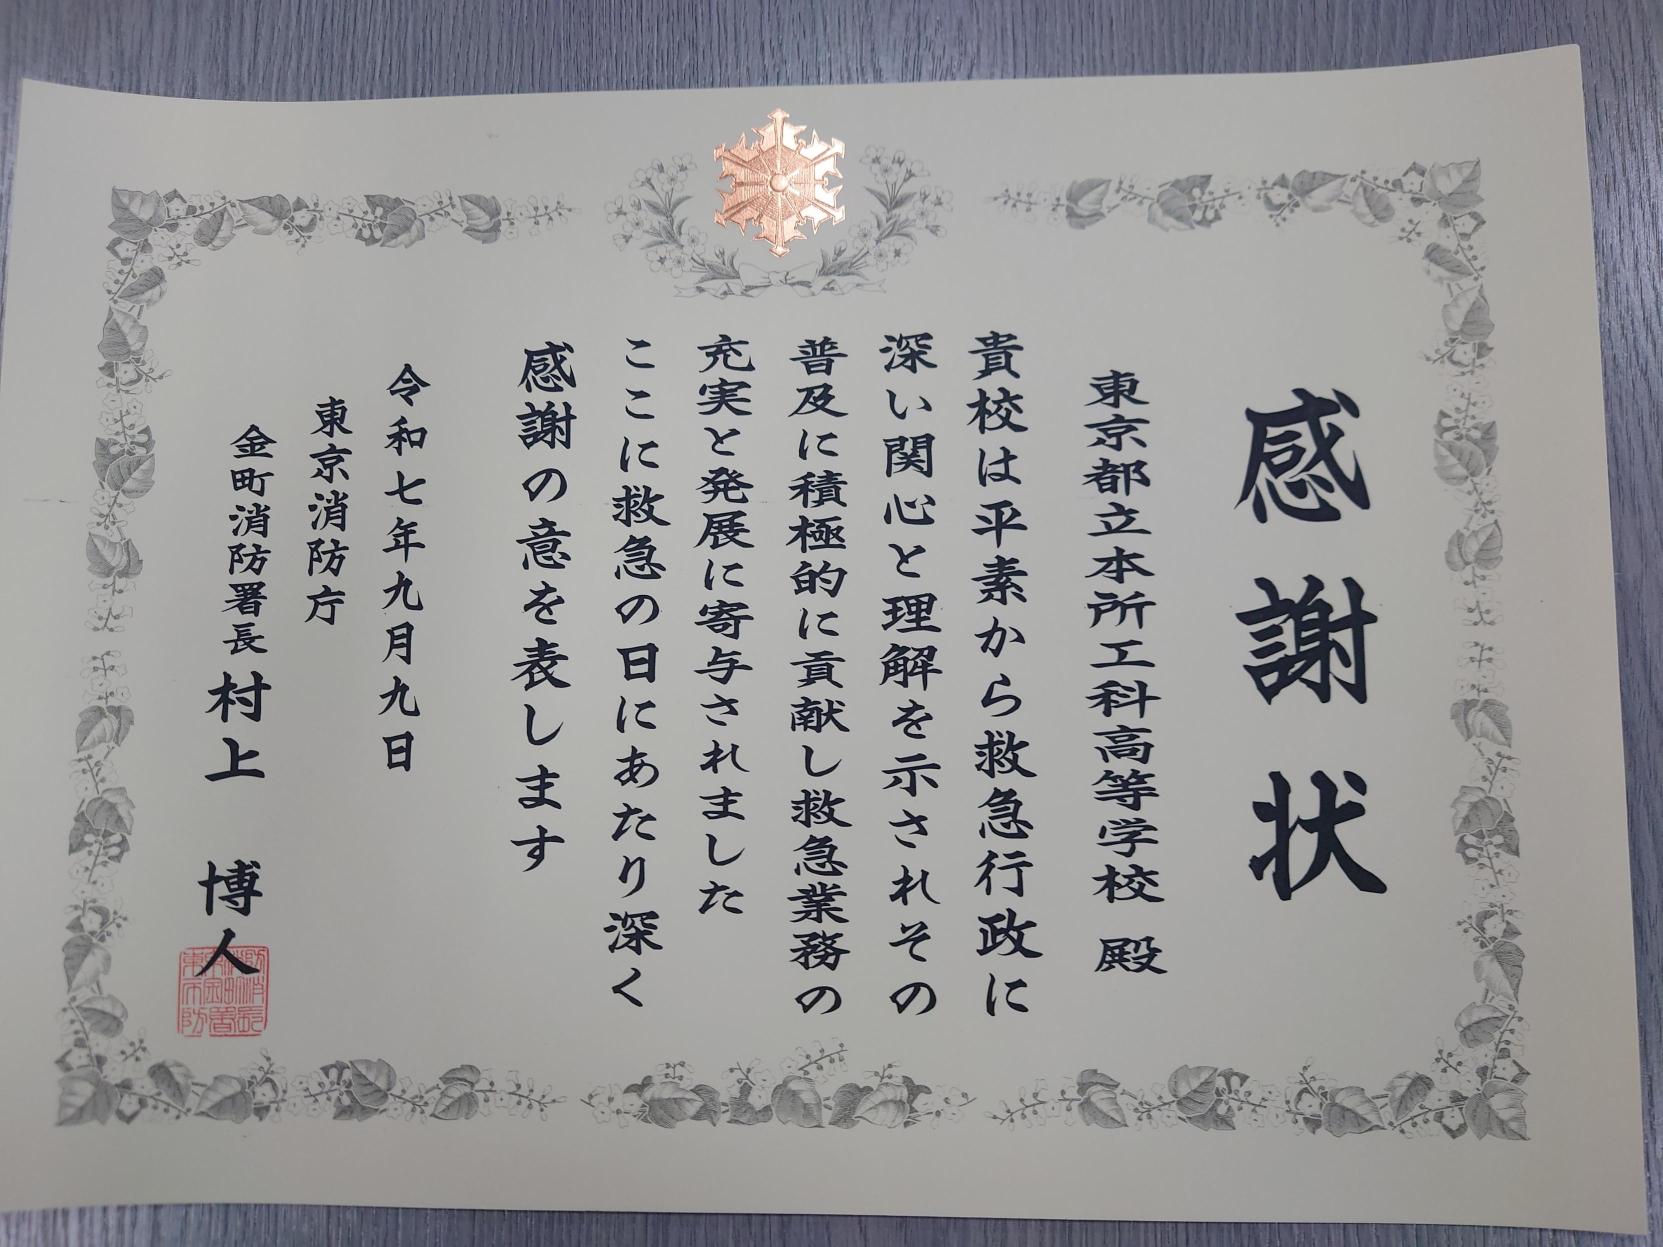 感謝状
東京都立本所工科高等学校 殿
貴校は平素から救急行政に
深い関心と理解を示されその
普及に積極的に貢献し救急業務の
充実と発展に寄与されました
ここに救急の日にあたり深く
感謝の意を表します
令和七年九月九日
東京消防庁
金町消防署長 村上 博人